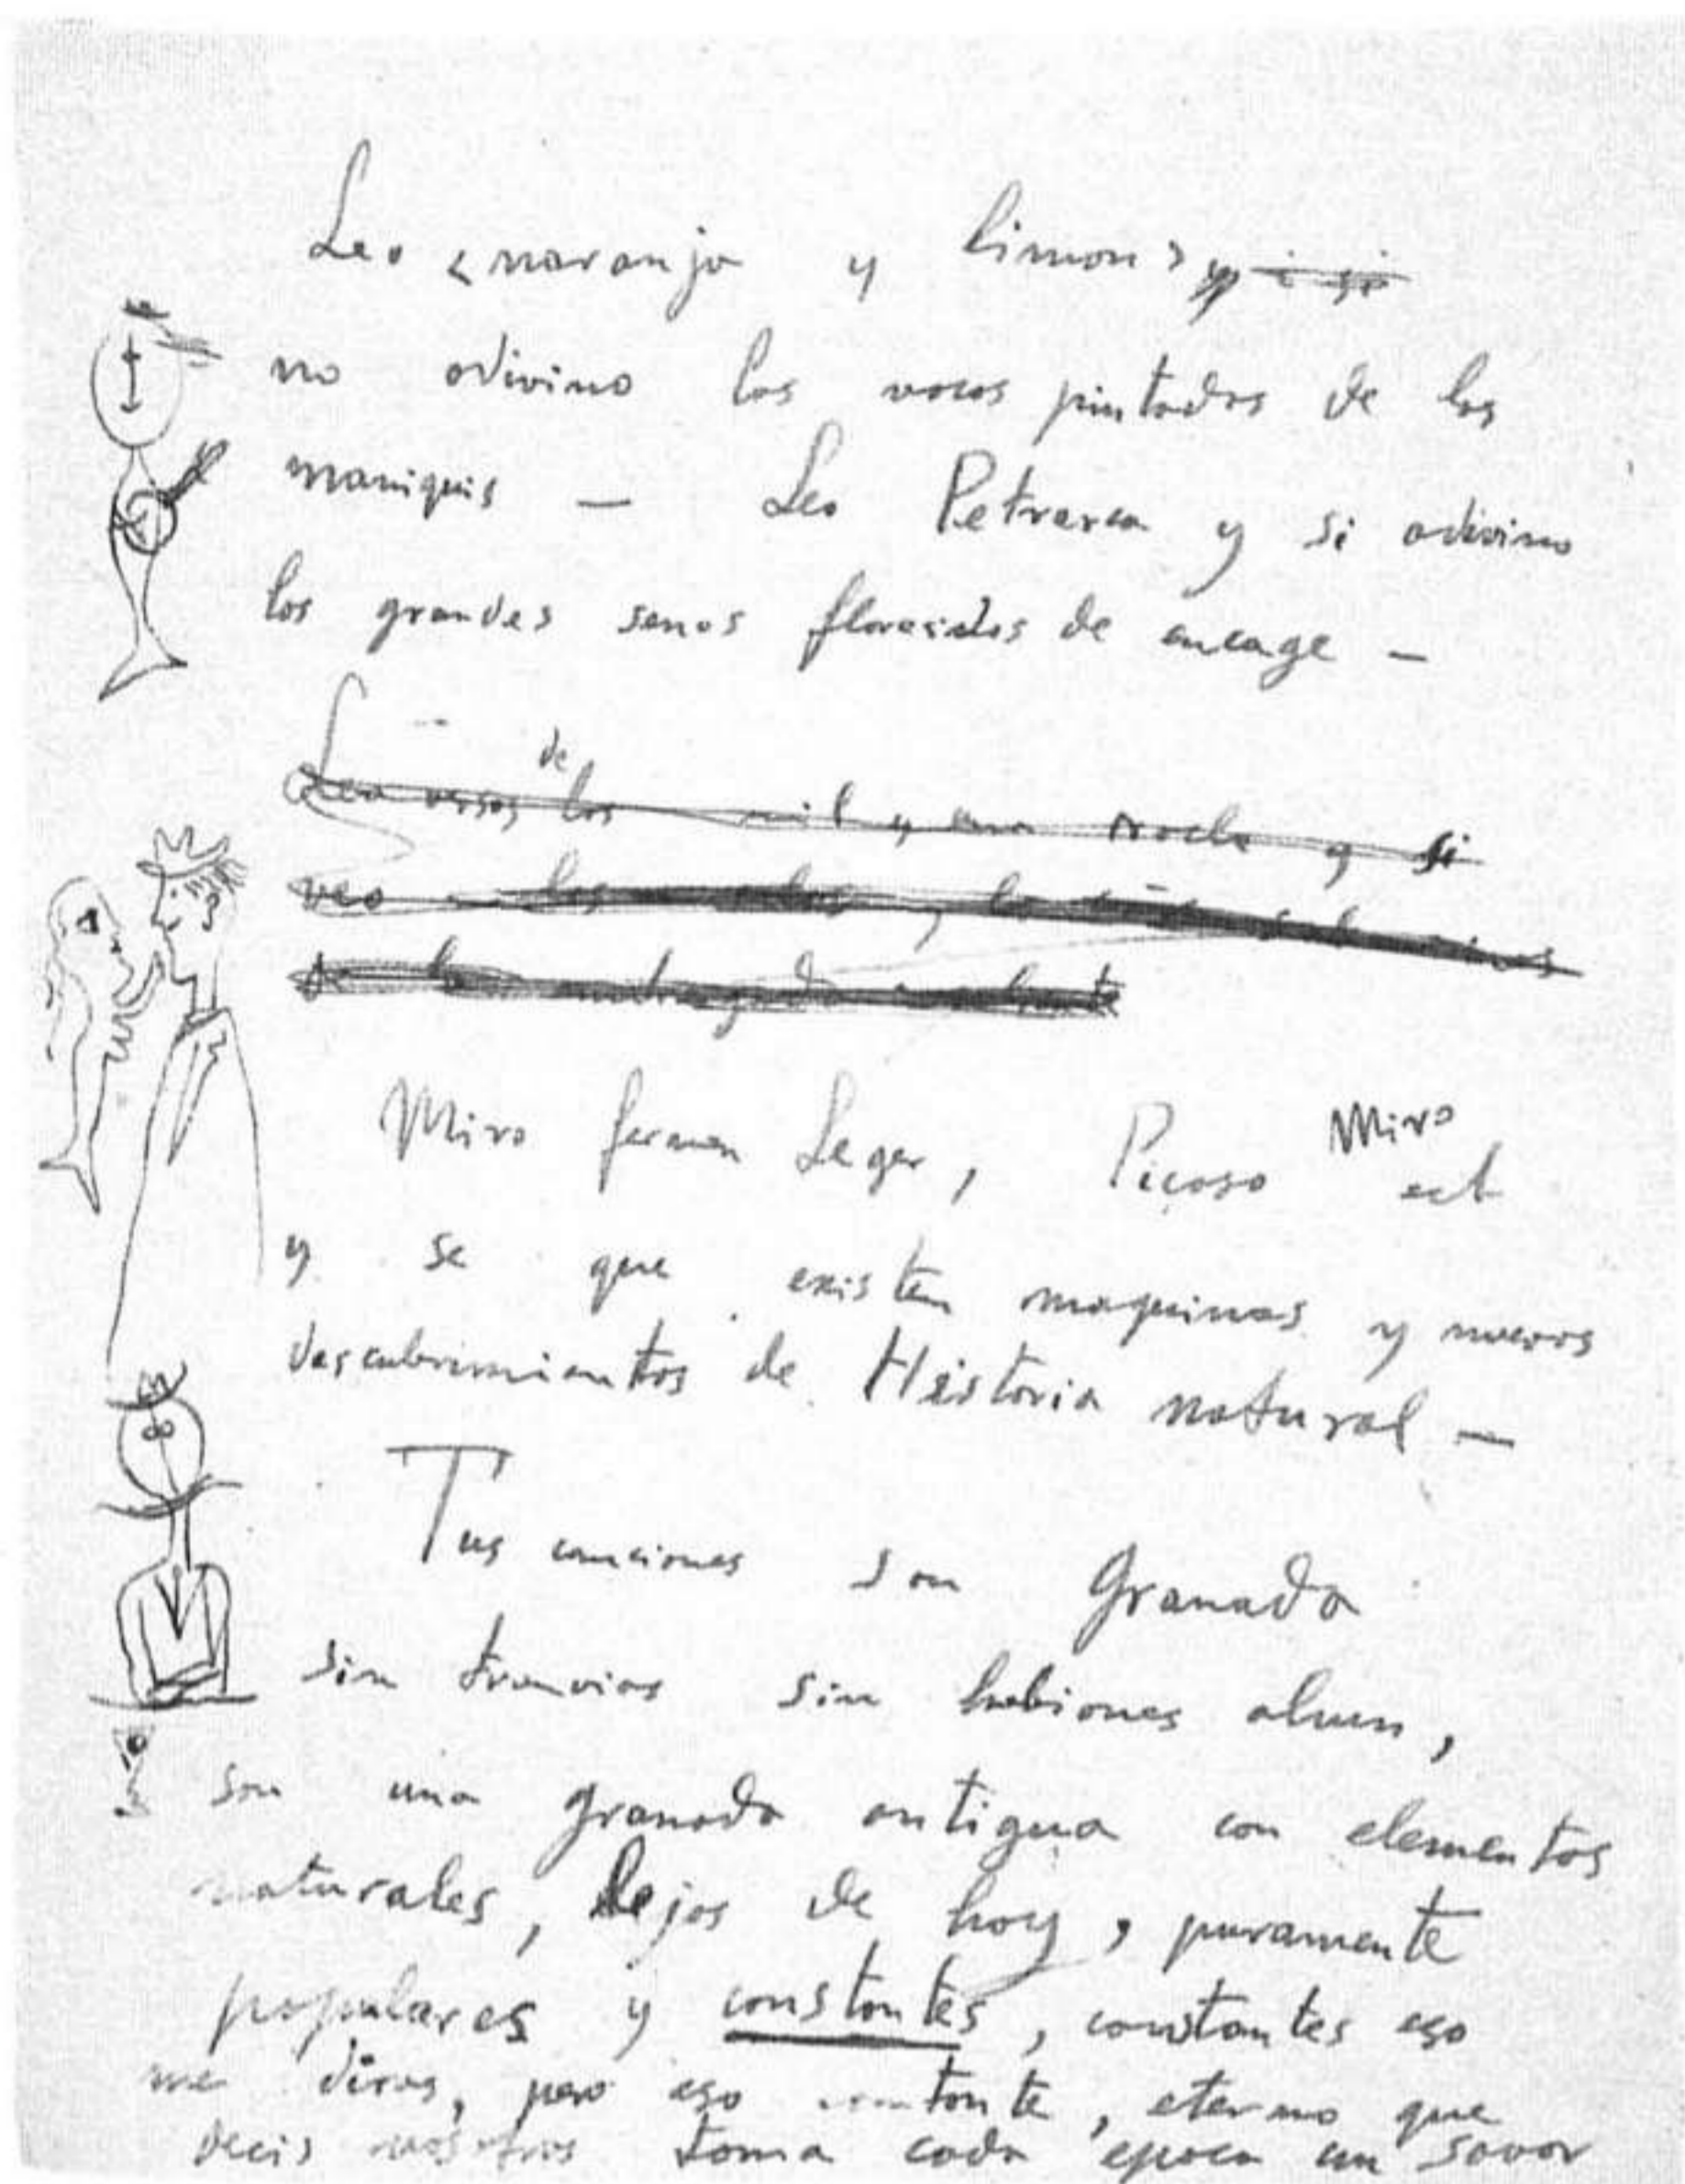 Leo <naranja y limon>
no adivino las vocas pintadas de las
maniquis — Leo Petrarca y si adivino
los grandes senos florecidos de encage —
de
Leo versos los mil y una noche y si
veo los
Miro fernan Leger, Picaso Miro ect
y se que existen maquinas y nuevos
descubrimientos de Historia natural —
Tus canciones son Granada
sin tranvias sin habiones aluen,
son una Granada antigua con elementos
naturales, lejos de hoy, puramente
populares y constantes, constantes eso
me diras, pero eso constante, eterno que
decis vosotros toma cada epoca un savor